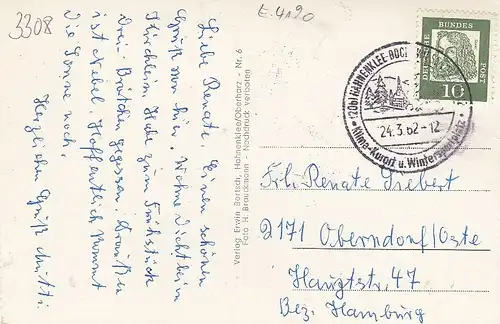 3308
E. 4190
Liebe Renate. Einen schönen
Gruß von hier. Wohne dicht beim
Kirchlein. Habe zum Frühstück
drei Brötchen gegessen. Draußen
ist Nebel. Hoffentlich kommt
die Sonne noch.
Herzlichen Gruß Mutti
Verlag Erwin Bortsch, Hahnenklee/Oberharz - Nr. 6
Foto H. Brauckmann - Nachdruck verboten
HAHNENKLEE-BOC
24.3.62-12
Klima-Kurort u. Wintersportplatz
DEUTSCHE BUNDES POST
10
Frl. Renate Siebert
2171 Oberndorf/Oste
Hauptstr. 47
Bez. Hamburg